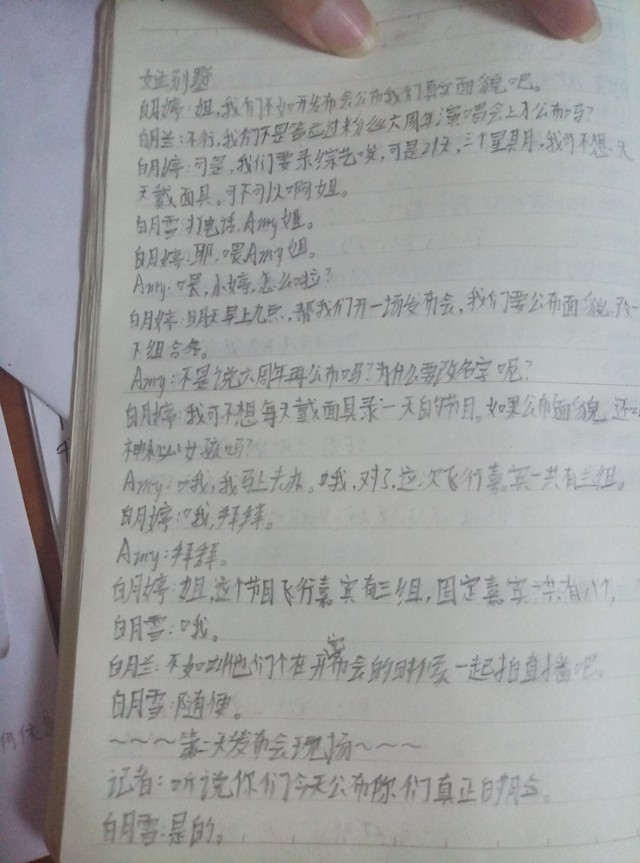 性别题
白月婷:姐,我们不如开发布会公布我们真实面貌吧。
白月兰:不行,我们不是答应过粉丝六周年演唱会上才公布吗?
白月婷:可是,我们要录综艺唉,可是21天,三个星期月,我可不想一天
天戴面具。可不可以啊姐。
白月雪:打电话,Amy姐。
白月婷:耶,喂Amy姐。
Amy:喂,小婷,怎么啦?
白月婷:明天早上九点,帮我们开一场发布会,我们要公布面貌,改一
下组合名。
Amy:不是说六周年再公布吗?为什么要改名字呢?
白月婷:我可不想每天戴面具录一天的节目。如果公布面貌,还
神秘女孩吗?
Amy:哦,我马上去办。哦,对了,这次飞行嘉宾一共有三组。
白月婷:哦,拜拜。
Amy:拜拜。
白月婷:姐,这个节目飞行嘉宾有三组,固定嘉宾一共有八个,
白月雪:哦。
白月兰:不如叫他们个在开布会的时候一起拍直播吧。
白月雪:随便。
~~~第二天发布会现场~~~
记者:听说你们今天公布你们真正的
白月雪:是的。